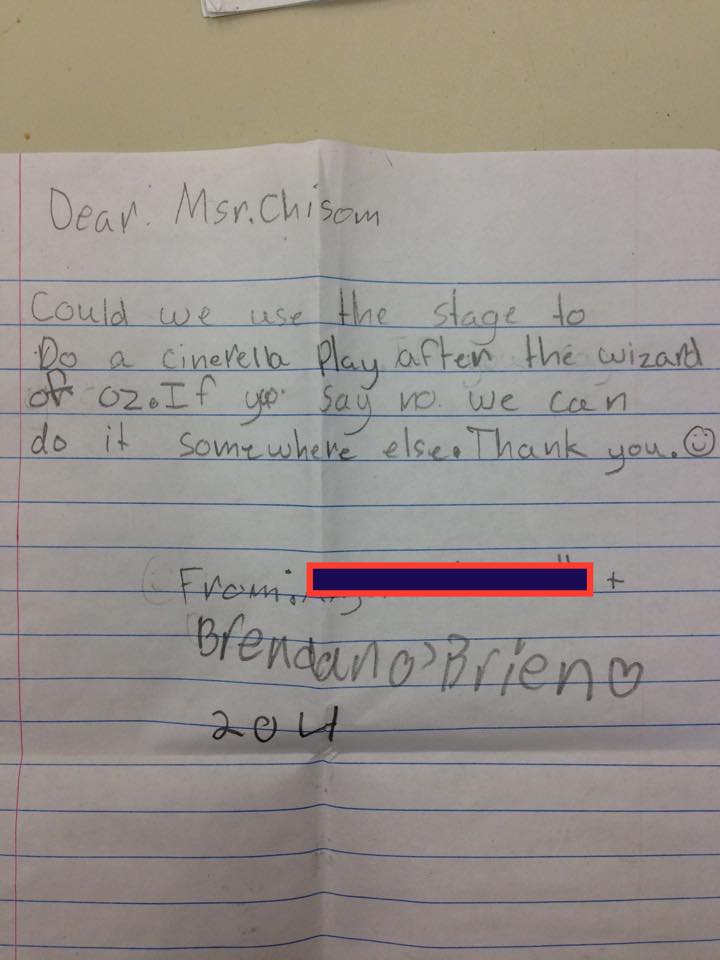 Dear. Msr. Chisom
Could we use the stage to
Do a cinerella Play after the wizard
of oz. If you say no. we can
do it somewhere else. Thank you. ☺
From: +
Brendan O'Brien ♡
204